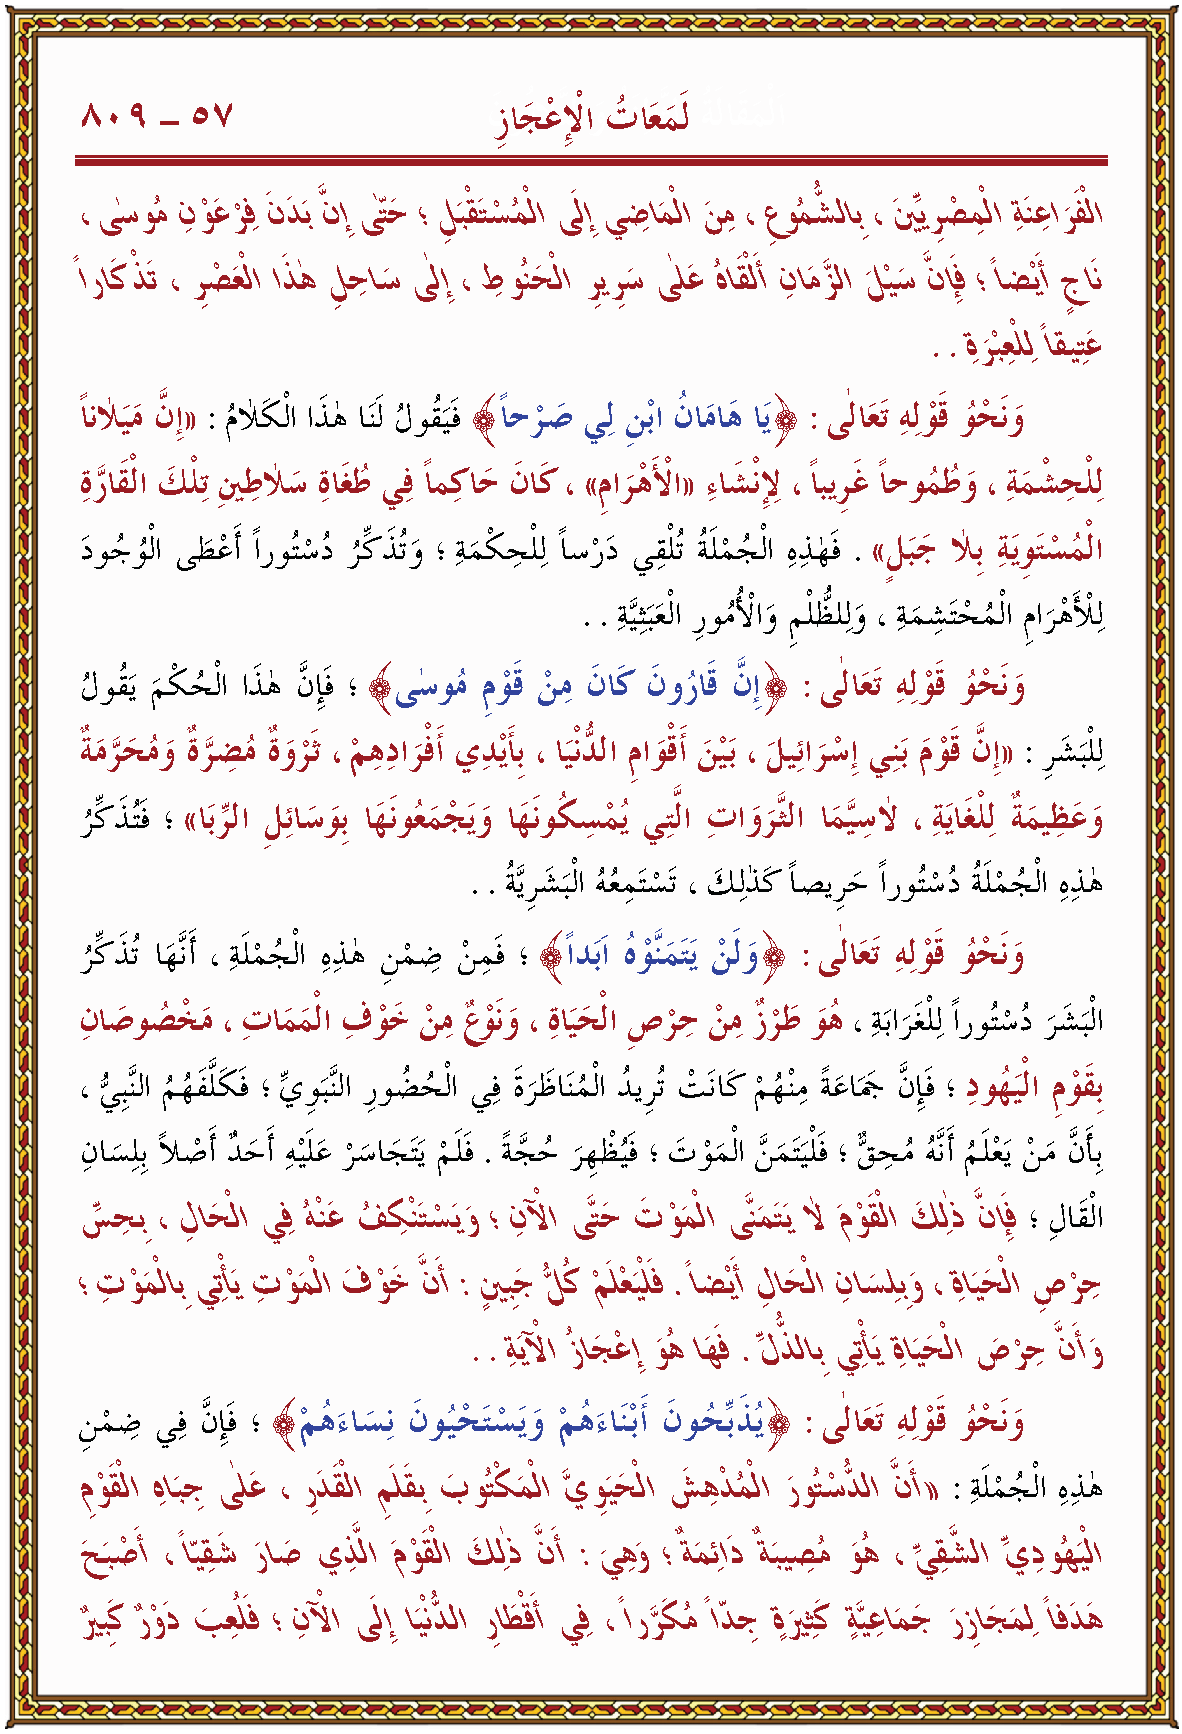 لَمَعَاتُ الْإِعْجَازِ ٥٧ ـ ٨٠٩
الْفَرَاعِنَةِ الْمِصْرِيِّينَ ، بِالشُّمُوعِ ، مِنَ الْمَاضِي إِلَى الْمُسْتَقْبَلِ ؛ حَتّٰى إِنَّ بَدَنَ فِرْعَوْنِ مُوسٰى ،
نَاجٍ أَيْضاً ؛ فَإِنَّ سَيْلَ الزَّمَانِ أَلْقَاهُ عَلٰى سَرِيرِ الْحَنُوطِ ، إِلٰى سَاحِلِ هٰذَا الْعَصْرِ ، تَذْكَاراً
عَتِيقاً لِلْعِبْرَةِ . .
وَنَحْوُ قَوْلِهِ تَعَالٰى : ﴿يَا هَامَانُ ابْنِ لِي صَرْحاً﴾ فَيَقُولُ لَنَا هٰذَا الْكَلَامُ : «إِنَّ مَيَلَاناً
لِلْحِشْمَةِ ، وَطُمُوحاً غَرِيباً ، لِإِنْشَاءِ «الْأَهْرَامِ» ، كَانَ حَاكِماً فِي طُغَاةِ سَلَاطِينِ تِلْكَ الْقَارَّةِ
الْمُسْتَوِيَةِ بِلَا جَبَلٍ» . فَهٰذِهِ الْجُمْلَةُ تُلْقِي دَرْساً لِلْحِكْمَةِ ؛ وَتُذَكِّرُ دُسْتُوراً أَعْطَى الْوُجُودَ
لِلْأَهْرَامِ الْمُحْتَشِمَةِ ، وَلِلظُّلْمِ وَالْأُمُورِ الْعَبَثِيَّةِ . .
وَنَحْوُ قَوْلِهِ تَعَالٰى : ﴿إِنَّ قَارُونَ كَانَ مِنْ قَوْمِ مُوسٰى﴾ ؛ فَإِنَّ هٰذَا الْحُكْمَ يَقُولُ
لِلْبَشَرِ : «إِنَّ قَوْمَ بَنِي إِسْرَائِيلَ ، بَيْنَ أَقْوَامِ الدُّنْيَا ، بِأَيْدِي أَفْرَادِهِمْ ، ثَرْوَةٌ مُضِرَّةٌ وَمُحَرَّمَةٌ
وَعَظِيمَةٌ لِلْغَايَةِ ، لَاسِيَّمَا الثَّرَوَاتِ الَّتِي يُمْسِكُونَهَا وَيَجْمَعُونَهَا بِوَسَائِلِ الرِّبَا» ؛ فَتُذَكِّرُ
هٰذِهِ الْجُمْلَةُ دُسْتُوراً حَرِيصاً كَذٰلِكَ ، تَسْتَمِعُهُ الْبَشَرِيَّةُ . .
وَنَحْوُ قَوْلِهِ تَعَالٰى : ﴿وَلَنْ يَتَمَنَّوْهُ اَبَداً﴾ ؛ فَمِنْ ضِمْنِ هٰذِهِ الْجُمْلَةِ ، أَنَّهَا تُذَكِّرُ
الْبَشَرَ دُسْتُوراً لِلْغَرَابَةِ ، وَهُوَ طَرْزٌ مِنْ حِرْصِ الْحَيَاةِ ، وَنَوْعٌ مِنْ خَوْفِ الْمَمَاتِ ، مَخْصُوصَانِ
بِقَوْمِ الْيَهُودِ ؛ فَإِنَّ جَمَاعَةً مِنْهُمْ كَانَتْ تُرِيدُ الْمُنَاظَرَةَ فِي الْحُضُورِ النَّبَوِيِّ ؛ فَكَلَّفَهُمُ النَّبِيُّ ،
بِأَنَّ مَنْ يَعْلَمُ أَنَّهُ مُحِقٌّ ؛ فَلْيَتَمَنَّ الْمَوْتَ ؛ فَيُظْهِرَ حُجَّةً . فَلَمْ يَتَجَاسَرْ عَلَيْهِ أَحَدٌ أَصْلاً بِلِسَانِ
الْقَالِ ؛ فَإِنَّ ذٰلِكَ الْقَوْمَ لَا يَتَمَنَّى الْمَوْتَ حَتَّى الْآنِ ؛ وَيَسْتَنْكِفُ عَنْهُ فِي الْحَالِ ، بِحِسِّ
حِرْصِ الْحَيَاةِ ، وَبِلِسَانِ الْحَالِ أَيْضاً . فَلْيَعْلَمْ كُلُّ جَبِينٍ : أَنَّ خَوْفَ الْمَوْتِ يَأْتِي بِالْمَوْتِ ؛
وَأَنَّ حِرْصَ الْحَيَاةِ يَأْتِي بِالذُّلِّ . فَهَا هُوَ إِعْجَازُ الْآيَةِ . .
وَنَحْوُ قَوْلِهِ تَعَالٰى : ﴿يُذَبِّحُونَ أَبْنَاءَهُمْ وَيَسْتَحْيُونَ نِسَاءَهُمْ﴾ ؛ فَإِنَّ فِي ضِمْنِ
هٰذِهِ الْجُمْلَةِ : «أَنَّ الدُّسْتُورَ الْمُدْهِشَ الْحَيَوِيَّ الْمَكْتُوبَ بِقَلَمِ الْقَدَرِ ، عَلٰى جِبَاهِ الْقَوْمِ
الْيَهُودِيِّ الشَّقِيِّ ، هُوَ مُصِيبَةٌ دَائِمَةٌ ؛ وَهِيَ : أَنَّ ذٰلِكَ الْقَوْمَ الَّذِي صَارَ شَقِيّاً ، أَصْبَحَ
هَدَفاً لِمَجَازِرَ جَمَاعِيَّةٍ كَثِيرَةٍ جِدّاً مُكَرَّراً ، فِي أَقْطَارِ الدُّنْيَا إِلَى الْآنِ ؛ فَلُعِبَ دَوْرٌ كَبِيرٌ